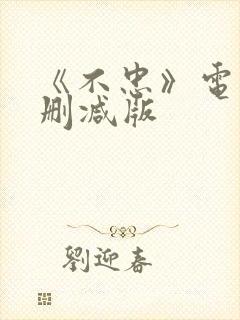 《不忠》電
删减版
劉迎春